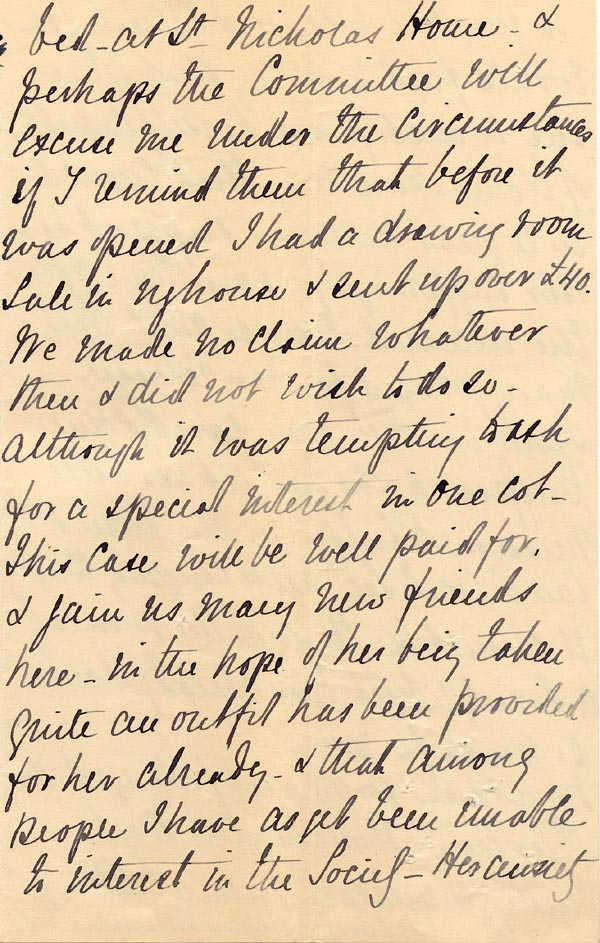 bed - at St Nicholas Home - &
perhaps the Committee will
excuse me under the circumstances
if I remind them that before it
was opened I had a drawing room
Sale in my house & sent up over £40.
We made no claim whatever
then & did not wish to do so -
although it was tempting to ask
for a special interest in one cot -
This case will be well paid for,
& gain us many new friends
here - in the hope of her being taken
quite an outfit has been provided
for her already - & that among
people I have as yet been unable
to interest in the Society - Her anxiety